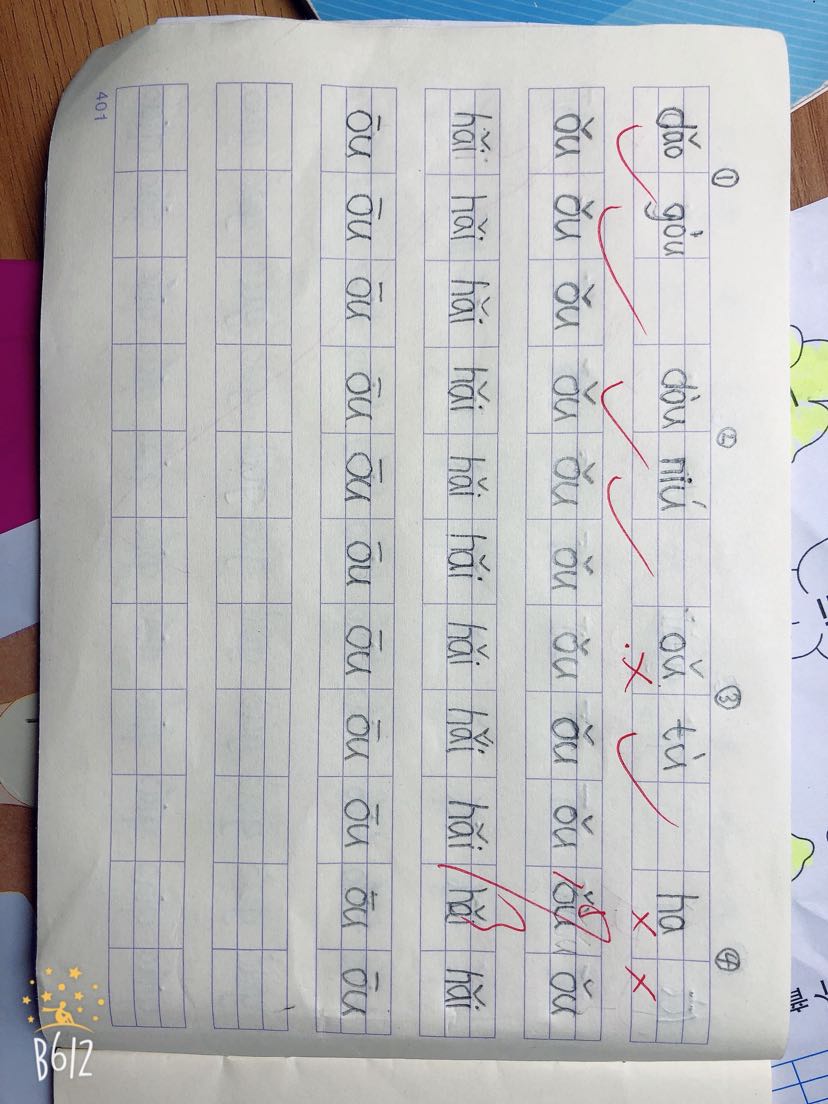 ① ② ③ ④
dǎo gòu dòu niú oǔ tù ha
ǒu ǒu ǒu ǒu ǒu ǒu ǒu ǒu ǒu ǒu ǒu
hǎi hǎi hǎi hǎi hǎi hǎi hǎi hǎi hǎi hǎi hǎi
ōu ōu ōu ōu ōu ōu ōu ōu ōu ōu ōu
401
B612